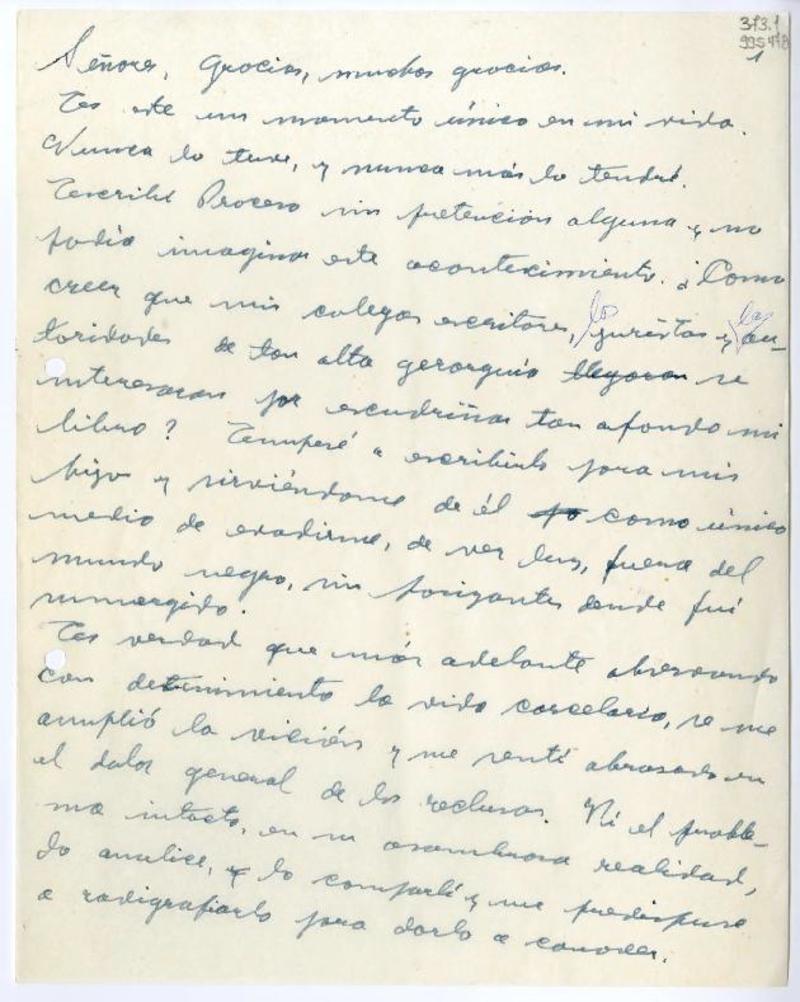 373.1
995478
1
Señores, Gracias, muchas gracias.
Es este un momento único en mi vida.
Nunca lo tuve, y nunca más lo tendré.
Escribí Proceso sin pretención alguna y no
podía imaginar este acontecimiento. ¿Como
creer que mis colegas escritores, los juristas y las au-
toridades de tan alta gerarquía llegaran se
interesaran por escudriñar tan afondo mi
libro? Empecé a escribirlo para mis
hijos y sirviéndome de él como único
medio de evadirme, de ver luz, fuera del
mundo negro, sin horizontes donde fuí
sumergido.
Es verdad que más adelante observando
con detenimiento la vida carcelaria, se me
amplió la visión y me sentí abrasado en
el dolor general de los reclusos. Ví el proble-
ma intacto, en su asombrosa realidad,
lo analicé, y lo compartí y me predispuse
a radigrafiarlo para darlo a conocer.